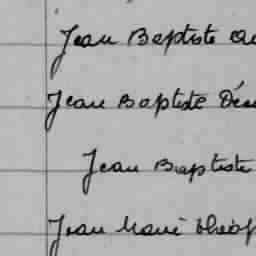 Jean Baptiste
Jean Baptiste
Jean Baptiste
Jean Marie